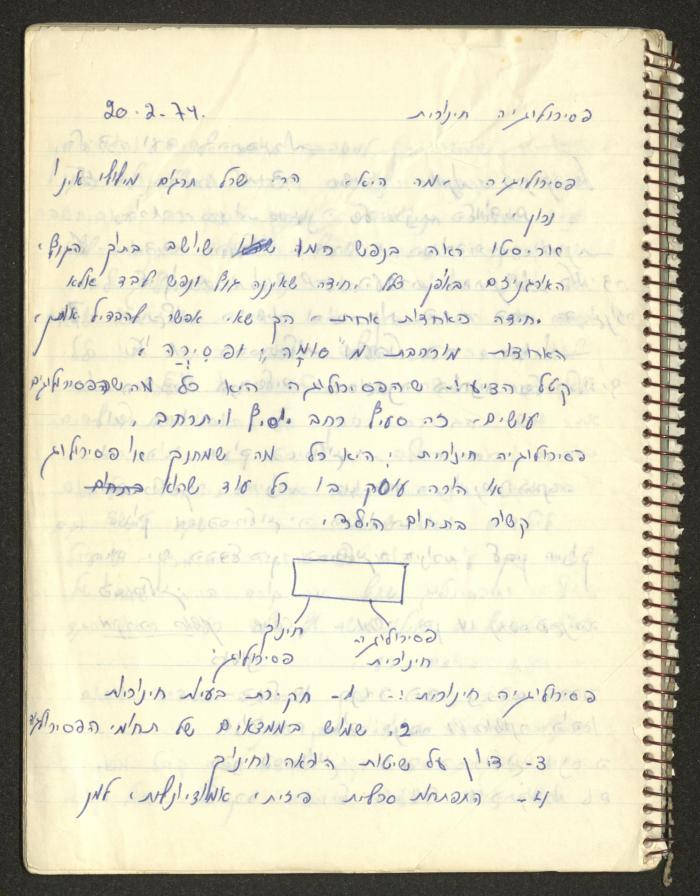 20.2.74.
פסיכולוגיה חינוכית
פסיכולוגיה של תרגום מילולי אינו
נכון.
אריסטו ראה בנפש חומר שיושב בתוך הגוף,
האורגניזם באופן יחידה שאיננה גוף ונפש לבד אלא
יחידה מאוחדת אחת - כך שאי אפשר להבדיל אותן,
האחדות מורכבת מ"סומה" ופסיכה".
קטל הציע: שהפסיכולוגיה היא כל מה שהפסיכולוגים
עושים - זה סעיף רחב יוסיף ויתרחב.
פסיכולוגיה חינוכית: היא כל מה שמחנך או פסיכולוג
או הורה עוסק בו כל עוד שהוא בתחום
קשור בתחום הילד.
חינוך
פסיכולוגיה
פסיכולוגי
חינוכית
פסיכולוגיה חינוכית: 1- חקירת בעיות חינוכיות
2. שמוש בממצאים של תחומי הפסיכולוגיה
3- דיון על שיטות הוראה וחינוך
4- התפתחות שכלית פיזית, אמוציונלית,